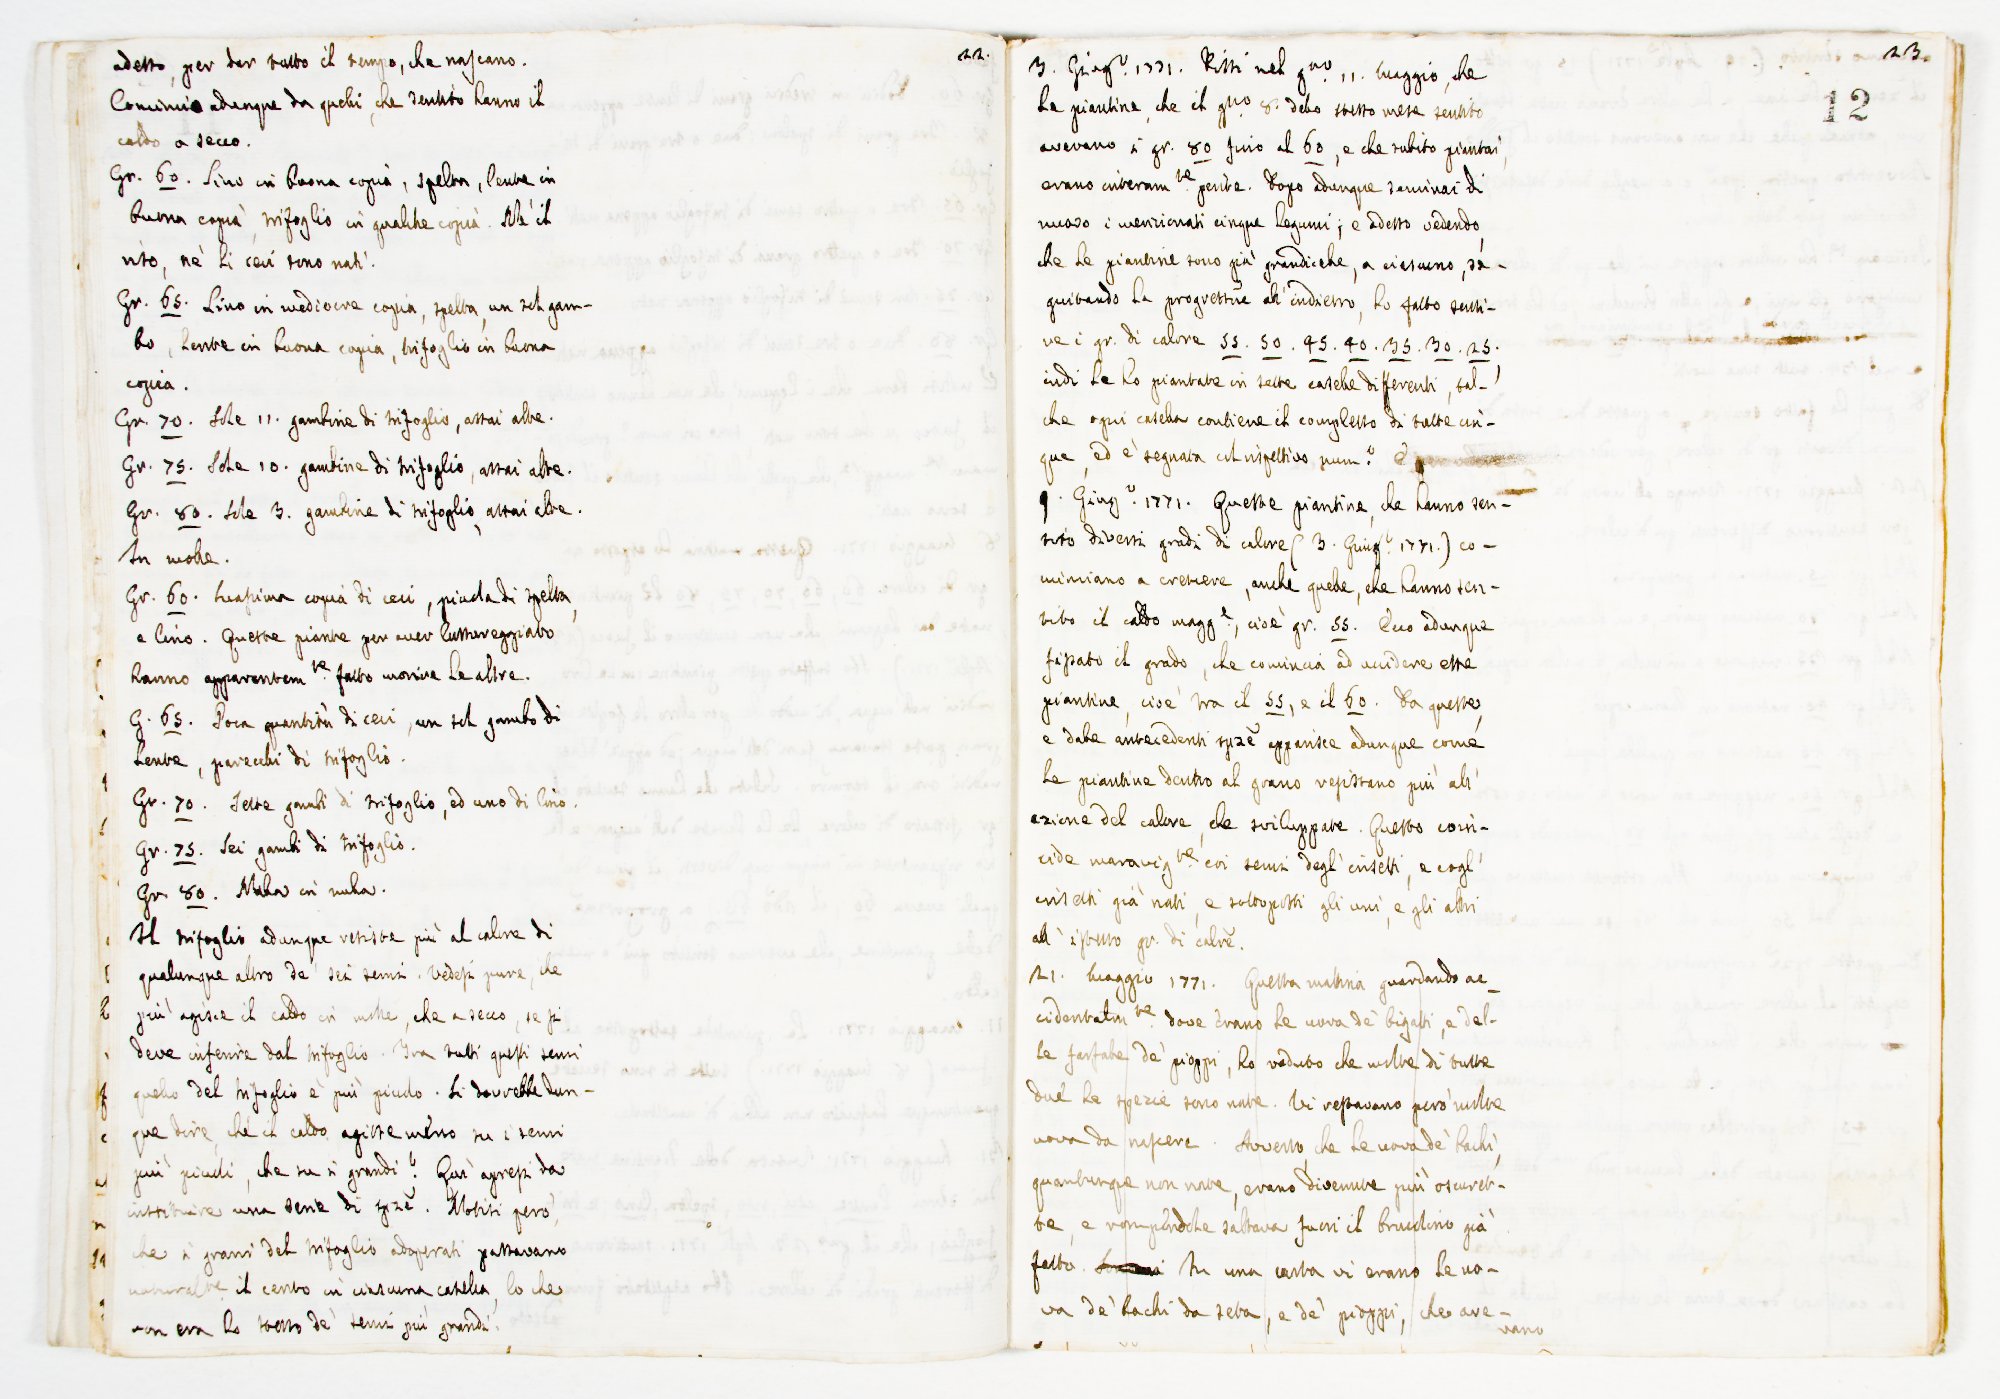 22.
adesso, per dar tutto il tempo, che nascano.
Cominciò adunque da quelli, che sentito hanno il
caldo a secco.
Gr. 60. Lino in buona copia, spelta, lente in
buona copia, trifoglio in qualche copia. Nè il
riso, nè li ceci sono nati.
Gr. 65. Lino in mediocre copia, spelta, un sol gam-
bo, lente in buona copia, trifoglio in buona
copia.
Gr. 70. Sole 11. gambine di trifoglio, assai alte.
Gr. 75. Sole 10. gambine di trifoglio, assai alte.
Gr. 80. Sole 3. gambine di trifoglio, assai alte.
In molle.
Gr. 60. Massima copia di ceci, piccola di spelta,
e lino. Queste piante per aver lussureggiato
hanno apparentem.te fatto morire le altre.
G. 65. Poca quantità di ceci, un sol gambo di
lente, parecchi di trifoglio.
Gr. 70. Sette gambi di trifoglio, ed uno di lino.
Gr. 75. Sei gambi di trifoglio.
Gr. 80. Nulla in nulla.
Il trifoglio adunque resiste più al calore di
qualunque altro de' sei semi. Vedesi pure, che
più agisce il caldo in molle, che a secco, se si
deve inferire dal trifoglio. Fra tutti questi semi
quello del trifoglio è più piccolo. Si dovrebbe dun-
que dire, che il caldo agisse meno su i semi
più piccoli, che su i grandi? Quì apresi da
instituire una serie di spze. Notisi però,
che i grani del trifoglio adoperati passavano
il cento in ciascuna casella, lo che
non era lo stesso de' semi più grandi.
23.
12
3. Giug.o 1771. Dissi nel gno 11. Maggio, che
le piantine, che il gno 8. dello stesso mese sentito
avevano i gr. 80 fino al 60, e che subito piantai,
erano interam.te perite. Dopo adunque seminai di
nuovo i menzionati cinque legumi; e adesso vedendo,
che le piantine sono già grandicelle, a ciascuno, se-
guitando la progressne all'indietro, ho fatto senti-
re i gr. di calore 55. 50. 45. 40. 35. 30. 25.
indi le ho piantate in sette caselle differenti, tal-
che ogni casella contiene il complesso di tutte cin-
que, ed è segnata col rispettivo num.o
9. Giug.o 1771. Queste piantine, che hanno sen-
tito diversi gradi di calore (3. Giug.o 1771.) co-
minciano a crescere, anche quelle, che hanno sen-
tito il caldo magg.e, cioè gr. 55. Ecco adunque
fissato il grado, che comincia ad uccidere esse
piantine, cioè tra il 55, e il 60. Da queste,
e dalle antecedenti spze apparisce adunque come
le piantine dentro al grano resistano più all'
azione del calore, che sviluppate. Questo coin-
cide maravig.te coi semi degl'insetti, e cogl'
insetti già nati, e sottoposti gli uni, e gli altri
all'istesso gr. di calre.
21. Maggio 1771. Questa mattina guardando ac-
cidentalm.te dove erano le uova de' bigatti, e del-
le farfalle de' pioppi, ho veduto che molte di tutte
due le spezie sono nate. Vi restavano però molte
uova da nascere. Avverto, che le uova de' bachi,
quantunque non nate, erano divenute più oscuret-
te, e rompendole saltava fuori il brucolino già
fatto. In una carta vi erano le uo-
va de' bachi da seta, e de' pioppi, che ave-
vano